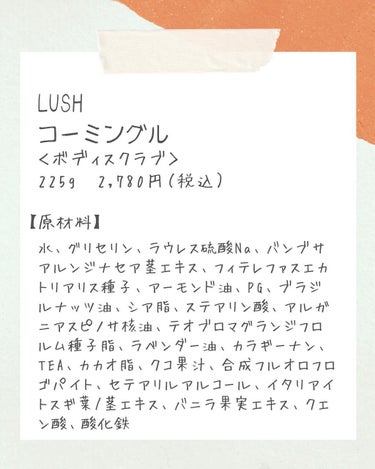 LUSH
コーミングル
<ボディスクラブ>
225g 2,780円(税込)
【原材料】
水、グリセリン、ラウレス硫酸Na、バンブサ
アルンジナセア茎エキス、フィテレファスエカ
トリアリス種子、アーモンド油、PG、ブラジ
ルナッツ油、シア脂、ステアリン酸、アルガ
ニアスピノサ核油、テオブロマグランジフロ
ルム種子脂、ラベンダー油、カラギーナン、
TEA、カカオ脂、クコ果汁、合成フルオロフロ
ゴパイト、セテアリルアルコール、イタリアイ
トスギ葉/茎エキス、バニラ果実エキス、クエ
ン酸、酸化鉄